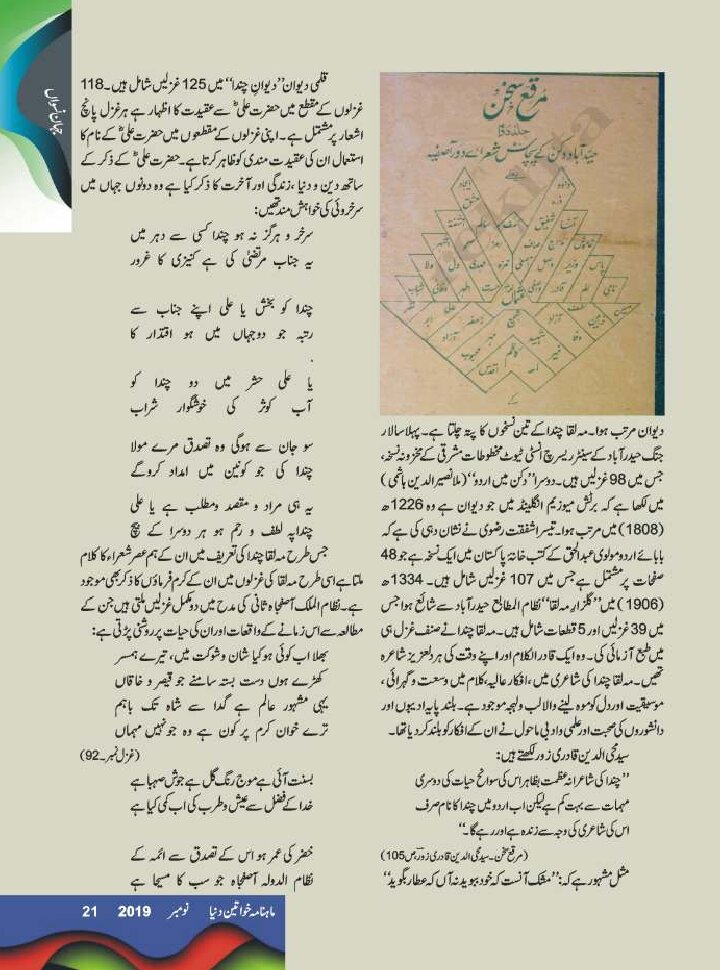 جہانِ نسواں
مرقع سخن
جلد دوم
حیدرآباد دکن کے پچاس شعرائے دور آصفیہ
دیوان مرتب ہوا۔ مہ لقا چندا کے تین نسخوں کا پتہ چلتا ہے۔ پہلا سالار
جنگ حیدرآباد کے سینٹر ریسرچ انسٹی ٹیوٹ مخطوطات مشرقی کے مخزونہ نسخہ،
جس میں 98 غزلیں ہیں۔ دوسرا ”دکن میں اردو“ (ملا نصیر الدین ہاشمی)
میں لکھا ہے کہ برٹش میوزیم انگلینڈ میں جو دیوان ہے وہ 1226ھ
(1808) میں مرتب ہوا۔ تیسرا شفقت رضوی نے نشان دہی کی ہے کہ
بابائے اردو مولوی عبدالحق کے کتب خانہ پاکستان میں ایک نسخہ ہے جو 48
صفحات پر مشتمل ہے جس میں 107 غزلیں شامل ہیں۔ 1334ھ
(1906) میں ”گلزارِ مہ لقا“ نظام المطابع حیدرآباد سے شائع ہوا جس
میں 39 غزلیں اور 5 قطعات شامل ہیں۔ مہ لقا چندا نے صنف غزل ہی
میں طبع آزمائی کی۔ وہ ایک قادر الکلام اور اپنے وقت کی ہردلعزیز شاعرہ
تھیں۔ مہ لقا چندا کی شاعری میں، افکار عالیہ، کلام میں وسعت و گہرائی،
موسیقیت اور دل کو موہ لینے والا لب ولہجہ موجود ہے۔ بلند پایہ ادیبوں اور
دانشوروں کی صحبت اور علمی و ادبی ماحول نے ان کے افکار کو بلند کر دیا تھا۔
سید محی الدین قادری زور لکھتے ہیں:
”چندا کی شاعرانہ عظمت بظاہر اس کی سوانح حیات کی دوسری
مہمات سے بہت کم ہے لیکن اب اردو میں چندا کا نام صرف
اس کی شاعری کی وجہ سے زندہ ہے اور رہے گا۔“
(مرقع سخن۔ سید محی الدین قادری زور، ص 105)
مثل مشہور ہے کہ: ”مشک آنست کہ خود ببوید نہ آں کہ عطار بگوید“
قلمی دیوان ”دیوانِ چندا“ میں 125 غزلیں شامل ہیں۔ 118
غزلوں کے مقطع میں حضرت علیؓ سے عقیدت کا اظہار ہے ہر غزل پانچ
اشعار پر مشتمل ہے۔ اپنی غزلوں کے مقطعوں میں حضرت علیؓ کے نام کا
استعمال ان کی عقیدت مندی کو ظاہر کرتا ہے۔ حضرت علیؓ کے ذکر کے
ساتھ دین و دنیا، زندگی اور آخرت کا ذکر کیا ہے وہ دونوں جہاں میں
سرخروئی کی خواہش مند تھیں:
سرخہ و ہرگز نہ ہو چندا کسی سے دہر میں
یہ جناب مرتضیٰؓ کی ہے کنیزی کا غرور
چندا کو بخش یا علی اپنے جناب سے
رتبہ جو دو جہاں میں ہو اقتدار کا
یا علی حشر میں دو چندا کو
آب کوثر کی خوشگوار شراب
سو جان سے ہوگی وہ تصدق مرے مولا
چندا کی جو کونین میں امداد کروگے
یہ ہی مراد و مقصد و مطلب ہے یا علی
چندا پہ لطف و رحم ہو ہر دوسرا کے بیچ
جس طرح مہ لقا چندا کی تعریف میں ان کے ہم عصر شعراء کا کلام
ملتا ہے اسی طرح مہ لقا کی غزلوں میں ان کے کرم فرماؤں کا ذکر بھی موجود
ہے۔ نظام الملک آصفجاہ ثانی کی مدح میں دو مکمل غزلیں ملتی ہیں جن کے
مطالعہ سے اس زمانے کے واقعات اور ان کی حیات پر روشنی پڑتی ہے:
بھلا اب کوئی ہو کیا شان و شوکت میں، تیرے ہمسر
کھڑے ہوں دست بستہ سامنے جو قیصر و خاقاں
یہی مشہور عالم ہے گدا سے شاہ تک باہم
ترے خوان کرم پر کون ہے وہ جو نہیں مہماں
(غزل نمبر۔92)
بسنت آئی ہے موج رنگ گل ہے جوش صہبا ہے
خدا کے فضل سے عیش و طرب کی اب کمی کیا ہے
خضر کی عمر ہو اس کے تصدق سے ائمہ کے
نظام الدولہ آصفجاہ جو سب کا مسیحا ہے
ماہنامہ خواتین دنیا نومبر 2019 21